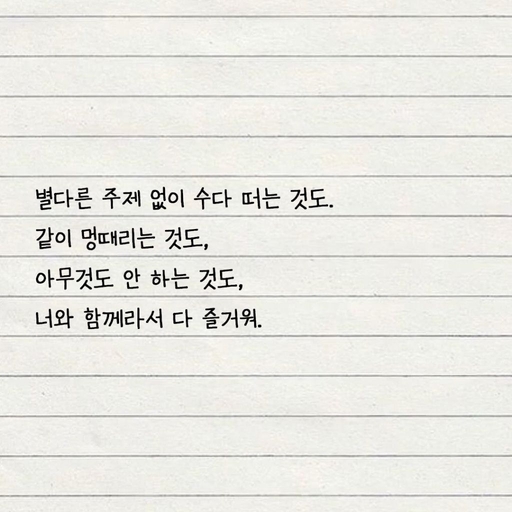 별다른 주제 없이 수다 떠는 것도.
같이 멍때리는 것도,
아무것도 안 하는 것도,
너와 함께라서 다 즐거워.